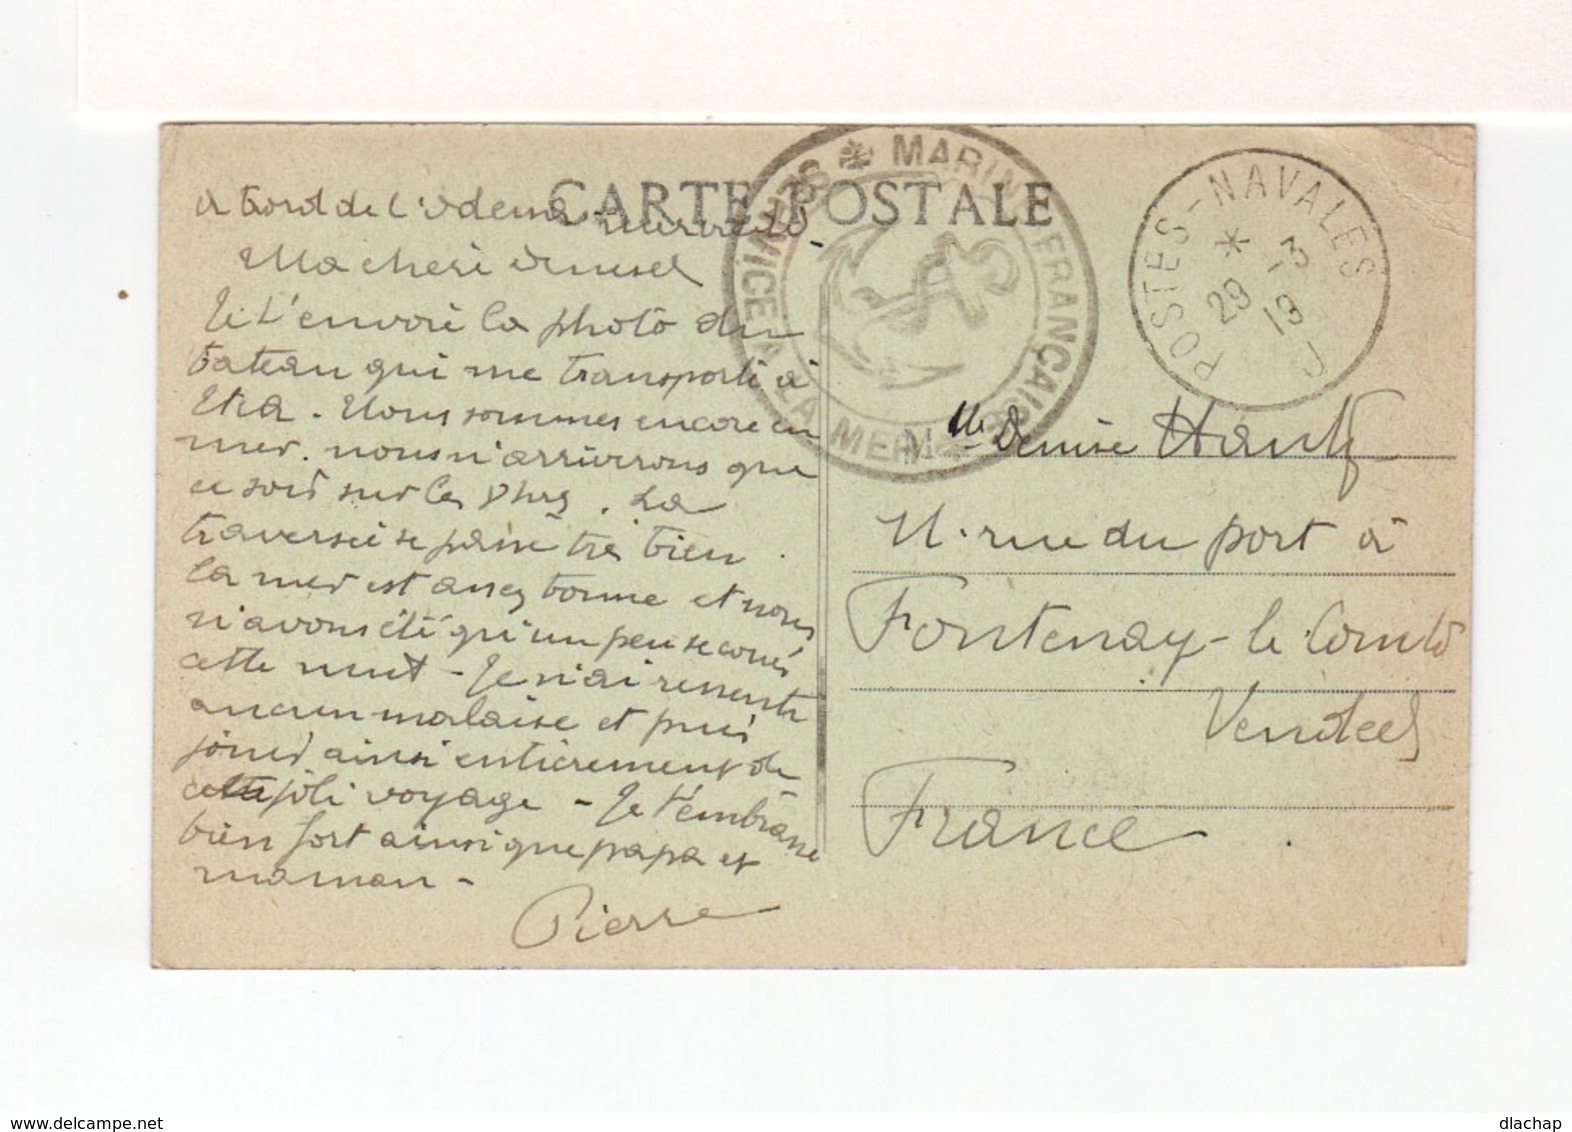 CARTE POSTALE
MARINE FRANÇAISE
SERVICE A LA MER
POSTES-NAVALES
*
29 - 3
19
a bord de l'Odessa mercredi
Ma chère Denise
Je t'envoie la photo du
bateau qui me transporte à
Itéa - Nous sommes encore en
mer. nous n'arriverons que
ce soir sur les 8hrs. La
traversée se passe très bien.
la mer est assez bonne et nous
n'avons été qu'un peu secoués
cette nuit - Je n'ai ressenti
aucun malaise et puis
jouir ainsi entièrement de
cette joli voyage - Je t'embrasse
bien fort ainsi que papa et
maman -
Pierre
Mlle Denise
rue du port à
Fontenay-le-Comte
Vendée
France.
dlachap